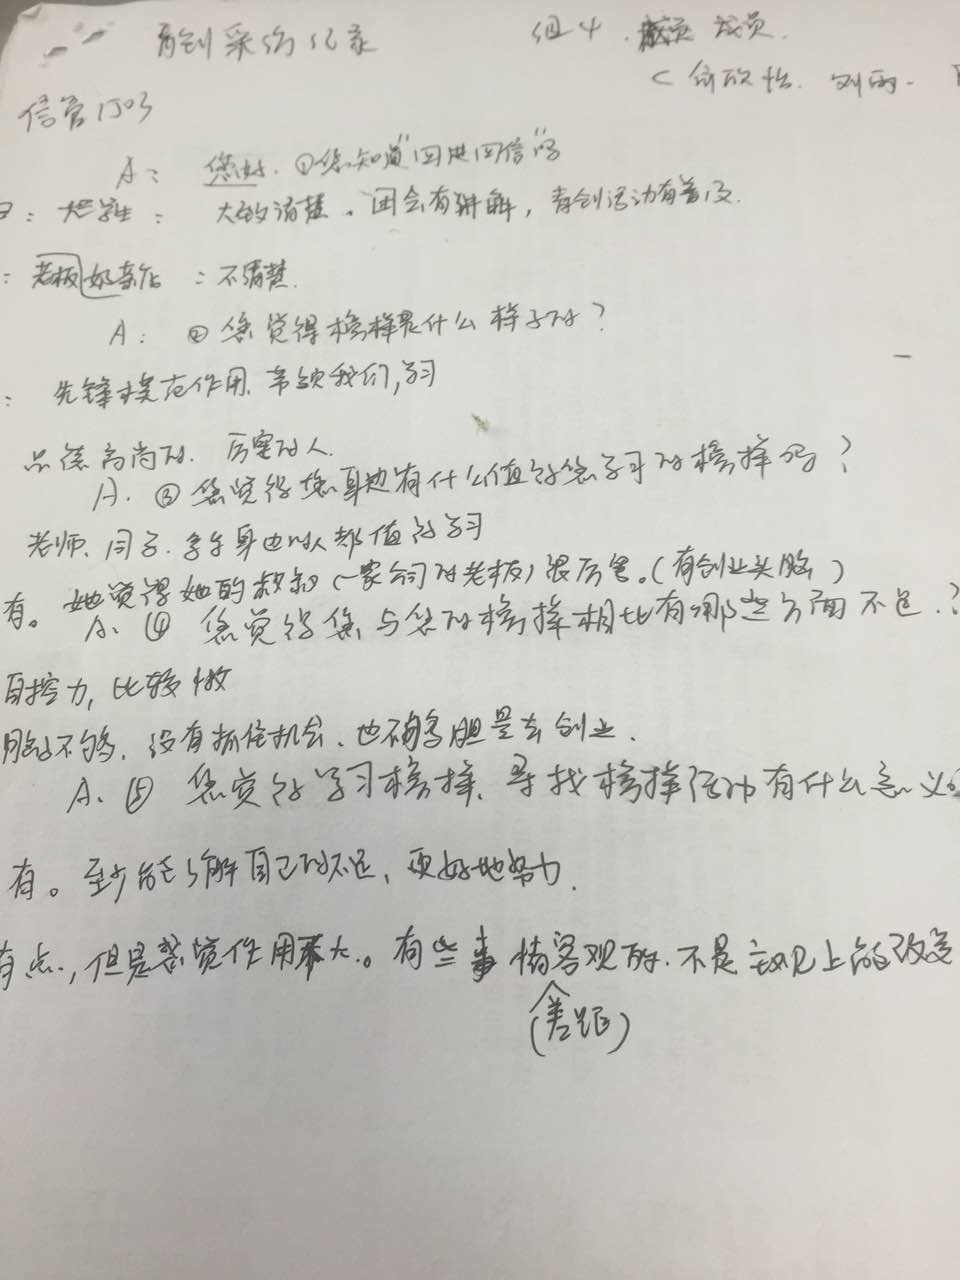 青创采访记录 组4. 成员
(俞欣怡. 刘雨.
信管1503
A: 您好. ①您知道"四进四信"吗
: 大学生: 大致清楚。团会有讲解, 青创活动有普及.
: 老板 奶茶店 : 不清楚.
A: ②您觉得榜样是什么样子的?
: 先锋模范作用. 带领我们学习
品德高尚的. 厉害的人.
A. ③您觉得您身边有什么值得您学习的榜样吗?
老师、同学. 身边的人都值得学习
有。她觉得她的叔叔(一家公司的老板)很厉害。(有创业头脑)
A. ④ 您觉得您与您的榜样相比有哪些方面不足.?
自控力, 比较懒
脑不够. 没有抓住机会. 也不够胆量去创业.
A. ⑤ 您觉得学习榜样、寻找榜样活动有什么意义
有。至少能了解自己的不足, 更好地努力.
有点, 但是感觉作用不大。有些事情客观的. 不是主观上的改变
(差距)